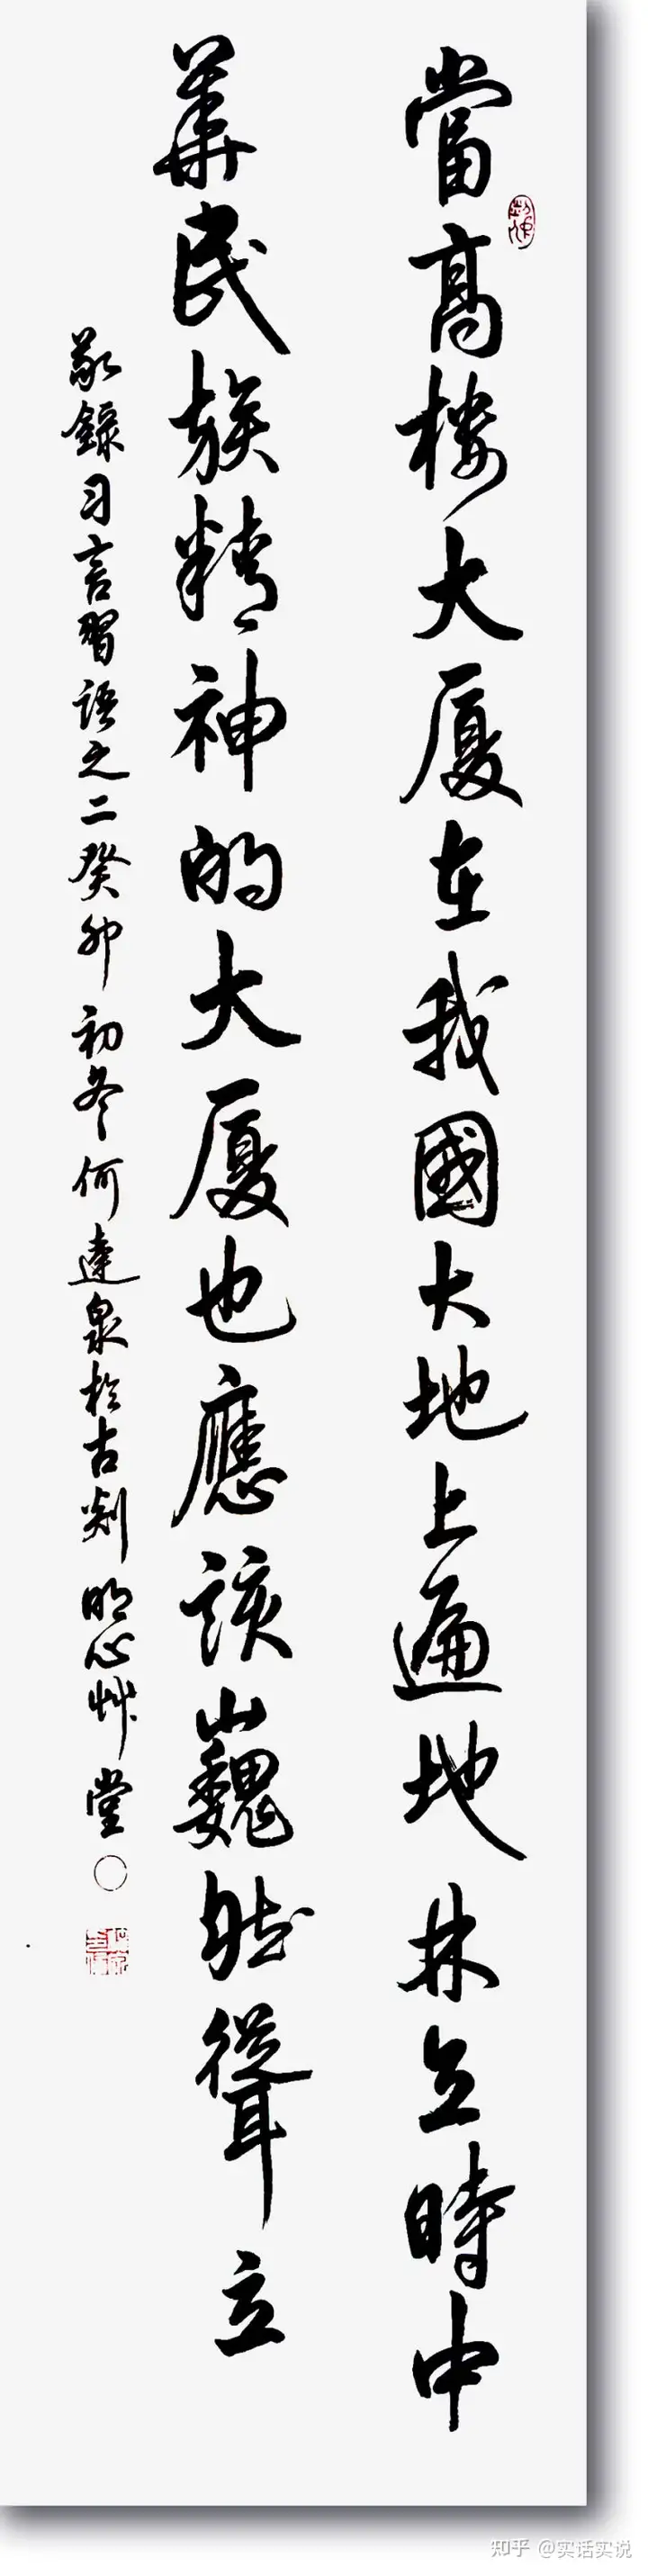 當高楼大厦在我國大地上遍地林立時中
華民族精神的大厦也應該巍然聳立
敬錄习言習語之二癸卯初冬何達泉於古剡明心艸堂
知乎 @实话实说